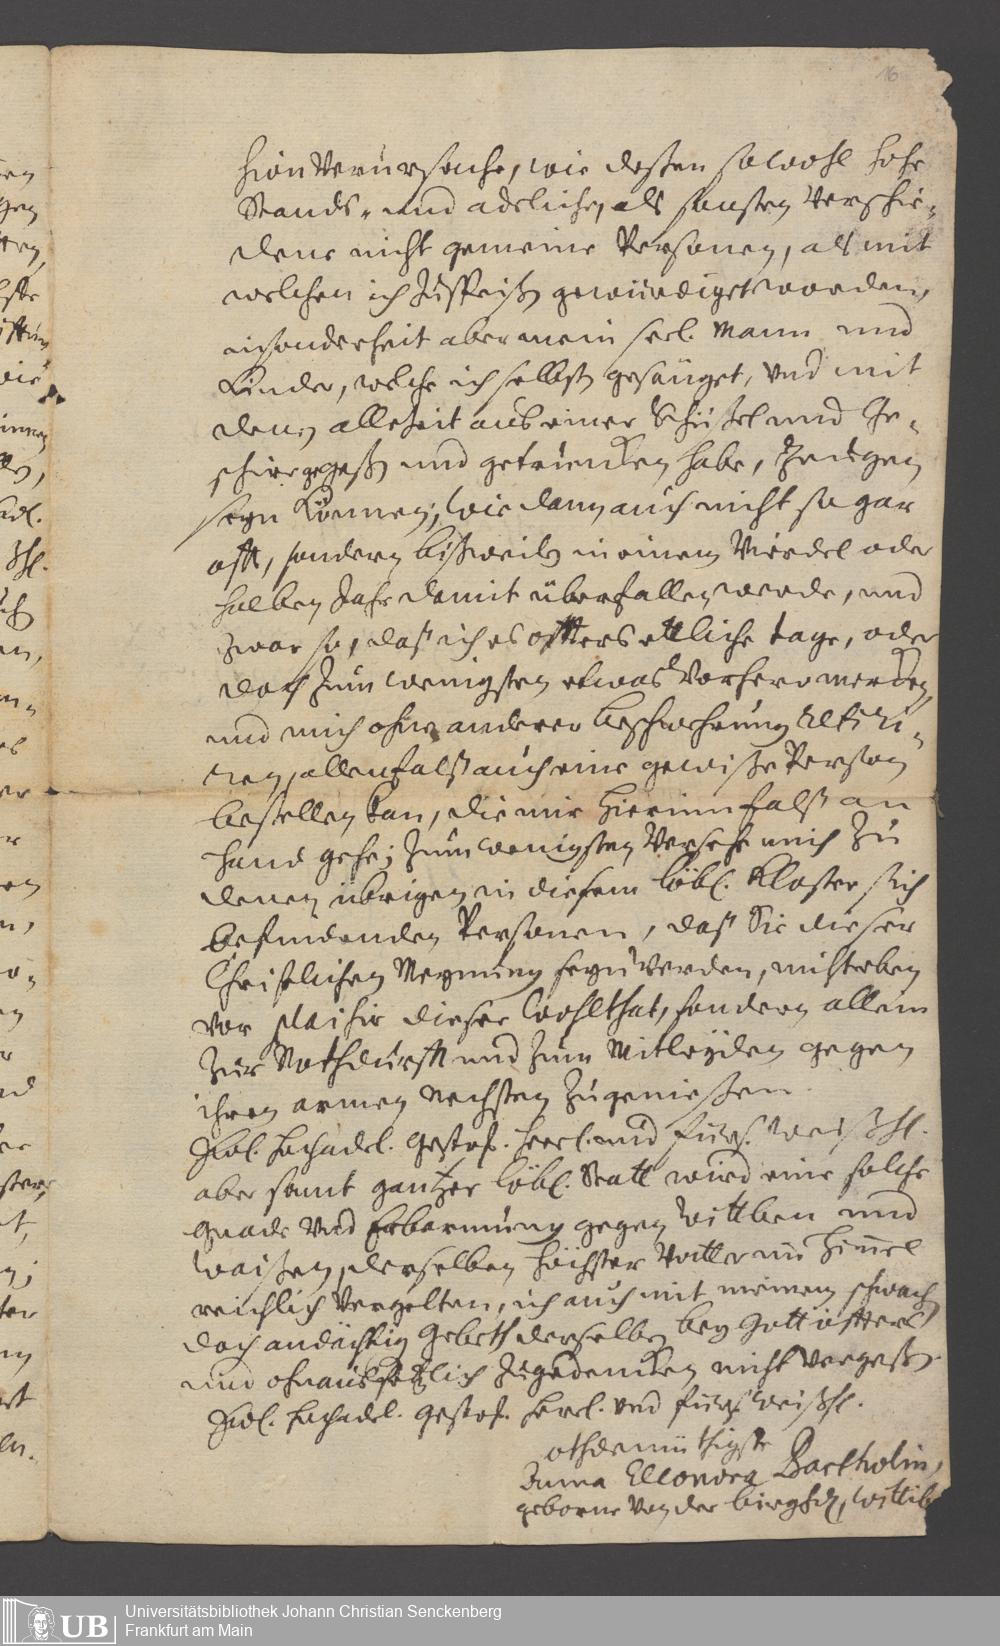 16
hievon Verursache, wie deßen sowohl hohe
Stands- und adeliche, als sonsten Verschie-
dene nicht gemeine Personen, als mit
welchen ich zuspeißen gewürdiget worden,
insonderheit aber mein seel. Mann und
Kinder, welche ich selbst gesäuget, und mit
denen allezeit aus einer Schüßel und Ge-
schirr gegeßen und getruncken habe, Zeugen
seyn können; wie dann auch nicht so gar
offt, sondern bißweilen in einem Vierdel oder
halben Jahr damit überfallen werde, und
zwar so, daß ich es öffters ettliche tage, oder
doch zum wenigsten etwas Vorhero mercken,
und mich ohne anderer beschwehrung retiri-
ren, allenfalß auch eine gewiße Person
bestellen kan, die mir hierinnfalß an
Hand gehe; zum wenigsten Versehe mich zu
denen übrigen in diesem löbl. Kloster sich
befindenden Personen, daß Sie dieser
Christlichen Meynung seyn werden, nicht eben
vor plaisir dieser Wohlthat, sondern allein
zur Nothdurfft und zum Mitleyden gegen
ihren armen nechsten zugenießen.
HochEdl. Gestr. Herrl. und Fürs. Weißh.
aber samt gantzer löbl. Statt wird eine solche
Gnade Und Erbarmung gegen Wittben und
Waißen, derselben höchster Vatter im Himmel
reichlich Vergelten, ich auch mit meinem schwach
doch andächtig Gebeth derselben bey Gott öffters
und ohnaußsetzlich zugedencken nicht Vergeßen.
Gestr. Herrl. Und Fürs. Weißh.
demüthigste
Anna Elleonora Bartholin,
geborne Von der Wittib
Universitätsbibliothek Johann Christian Senckenberg
UB Frankfurt am Main